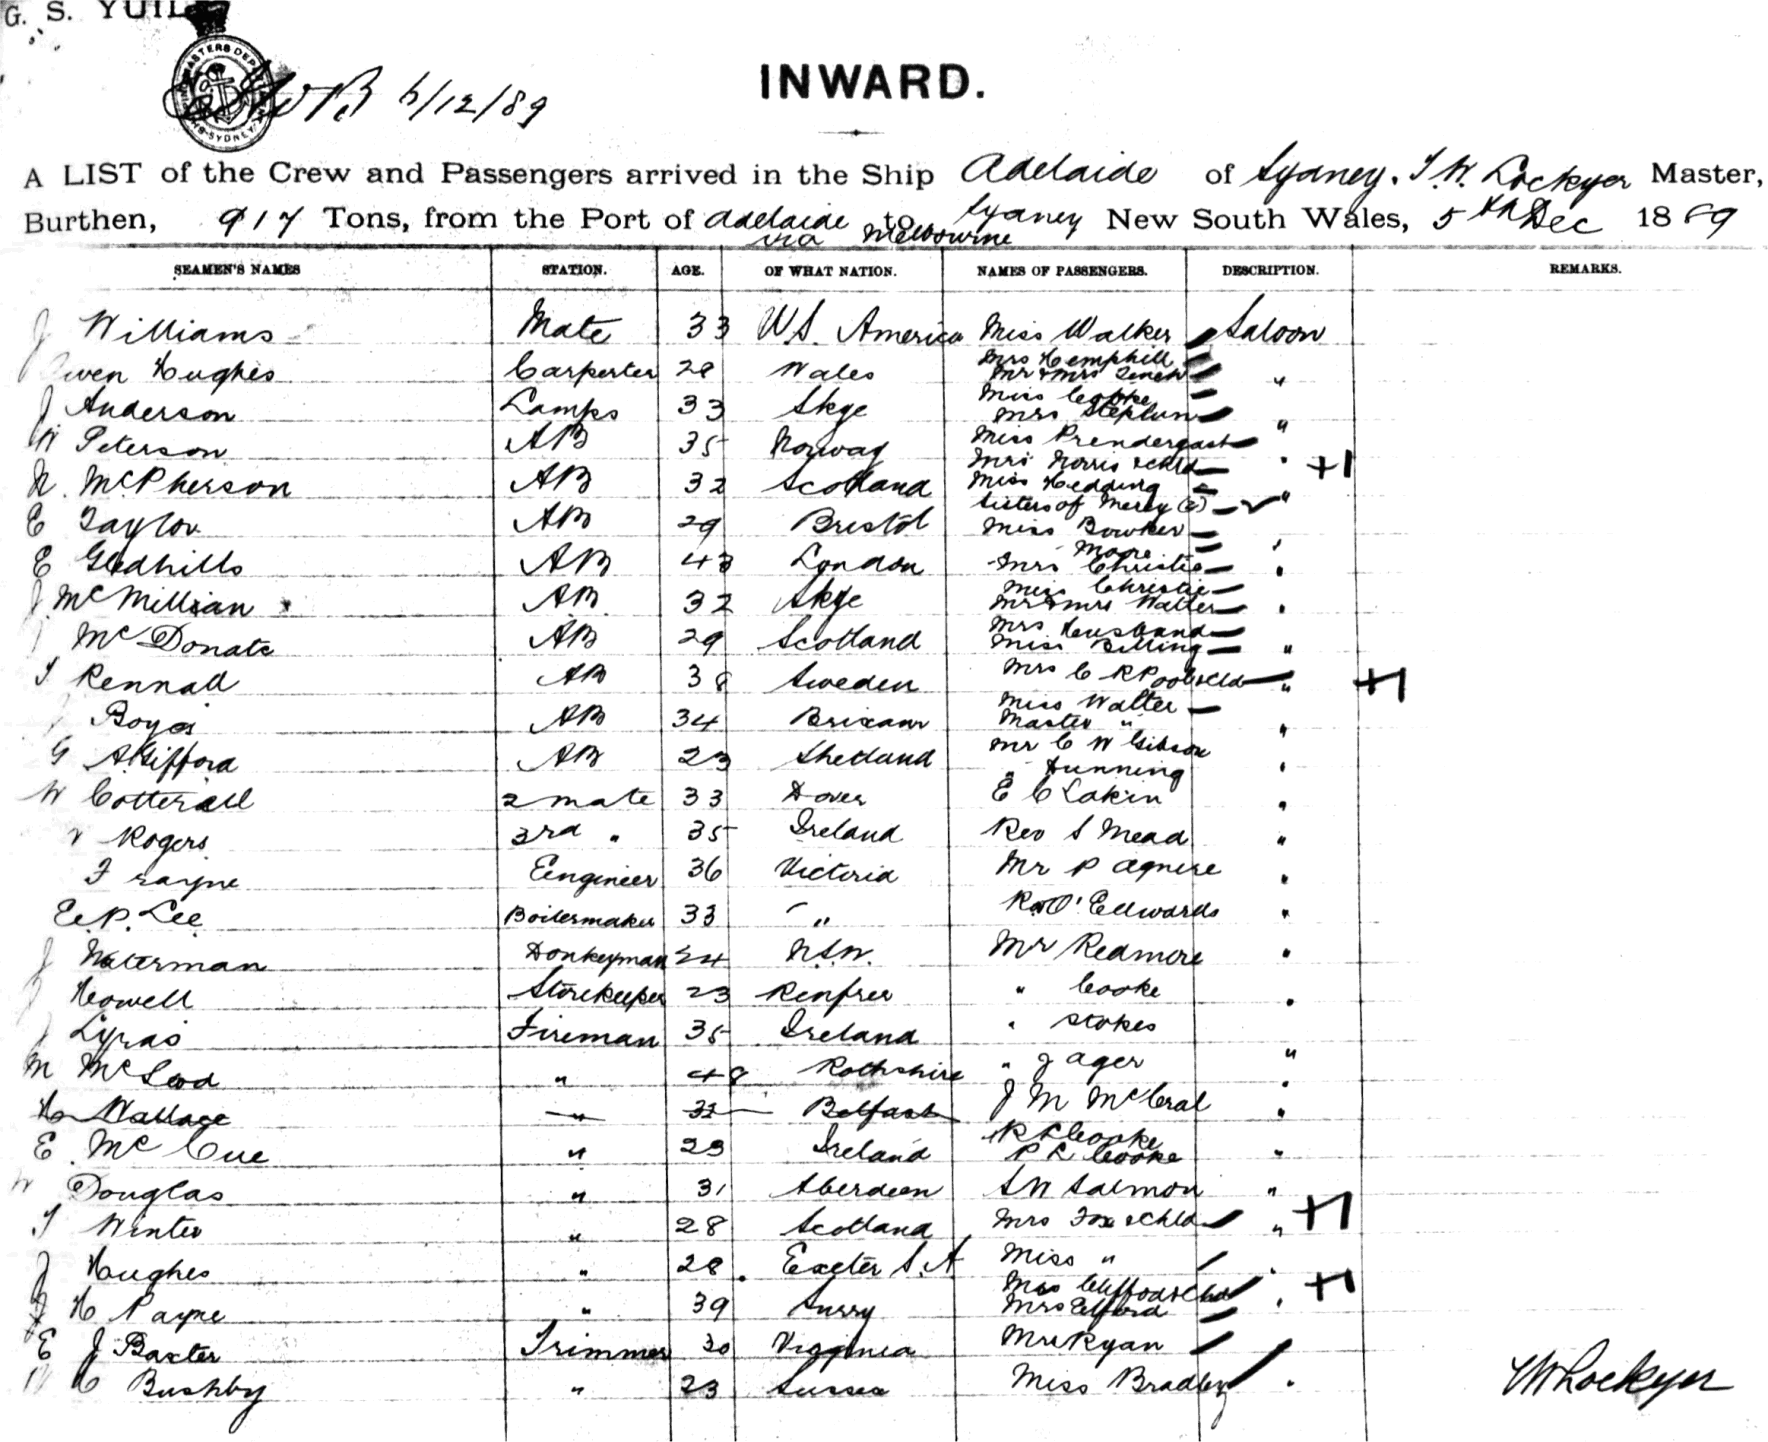 G. S. YUIL
6/12/89
INWARD.
A LIST of the Crew and Passengers arrived in the Ship Adelaide of Sydney, T.W. Lockyer Master,
Burthen, 917 Tons, from the Port of Adelaide to Sydney New South Wales, 5th Dec 1889
via Melbourne
SEAMEN'S NAMES STATION. AGE. OF WHAT NATION. NAMES OF PASSENGERS. DESCRIPTION. REMARKS.
J Williams Mate 33 U.S. America Miss Walker Saloon
Owen Hughes Carpenter 28 Wales Mrs Hemphill
Mr & Mrs "
J Anderson Lamps 33 Skye Miss Cooke
Mrs Stephen "
W Peterson AB 35 Norway Miss Prendergast
Mrs Norris & Chld " +1
N. McPherson AB 32 Scotland Miss Hedding
Sisters of Mercy (2) "
E Taylor AB 29 Bristol Miss Bowker
" Moore "
E Gledhills AB 43 London Mrs Christie "
J McMillian AB 32 Skye Miss Christie
Mr & Mrs Walter "
J McDonate AB 29 Scotland Mrs Husband
Miss Billing "
T Rennall AB 38 Sweden Mrs C R Pool & Chld " +1
J Boyes AB 34 Brixam Miss Walter
Master " "
G A Gifford AB 23 Shetland Mr C W Gibson
" Dunning "
W Cotterall 2 mate 33 Dover E C Lakin "
Rogers 3rd " 35 Ireland Rev S Mead "
F Engineer 36 Victoria Mr P Agnere "
E.P. Lee Boilermaker 33 " Edwards "
J Waterman Donkeyman 24 N.S.W. Mr Redmore "
J Howell Storekeeper 23 Renfrew " Cooke "
J Lyras Fireman 35 Ireland " Stokes
M McLeod " 48 Rothshire " J Ager "
H Wallace " 32 Belfast J M McCral "
E McCue " 23 Ireland R L Cooke
P L Cooke "
W Douglas " 31 Aberdeen S W Salmon "
T Winter " 28 Scotland Mrs Fox & Chld " +1
J Hughes " 28 Exeter S.A Miss " "
J H Payne " 39 Surry Mrs Clifford & Chld " +1
Mrs Elford
E J Baxter Trimmer 30 Virginia Mrs Ryan
W C Bushby " 23 Sussex Miss Bradley "
TW Lockyer